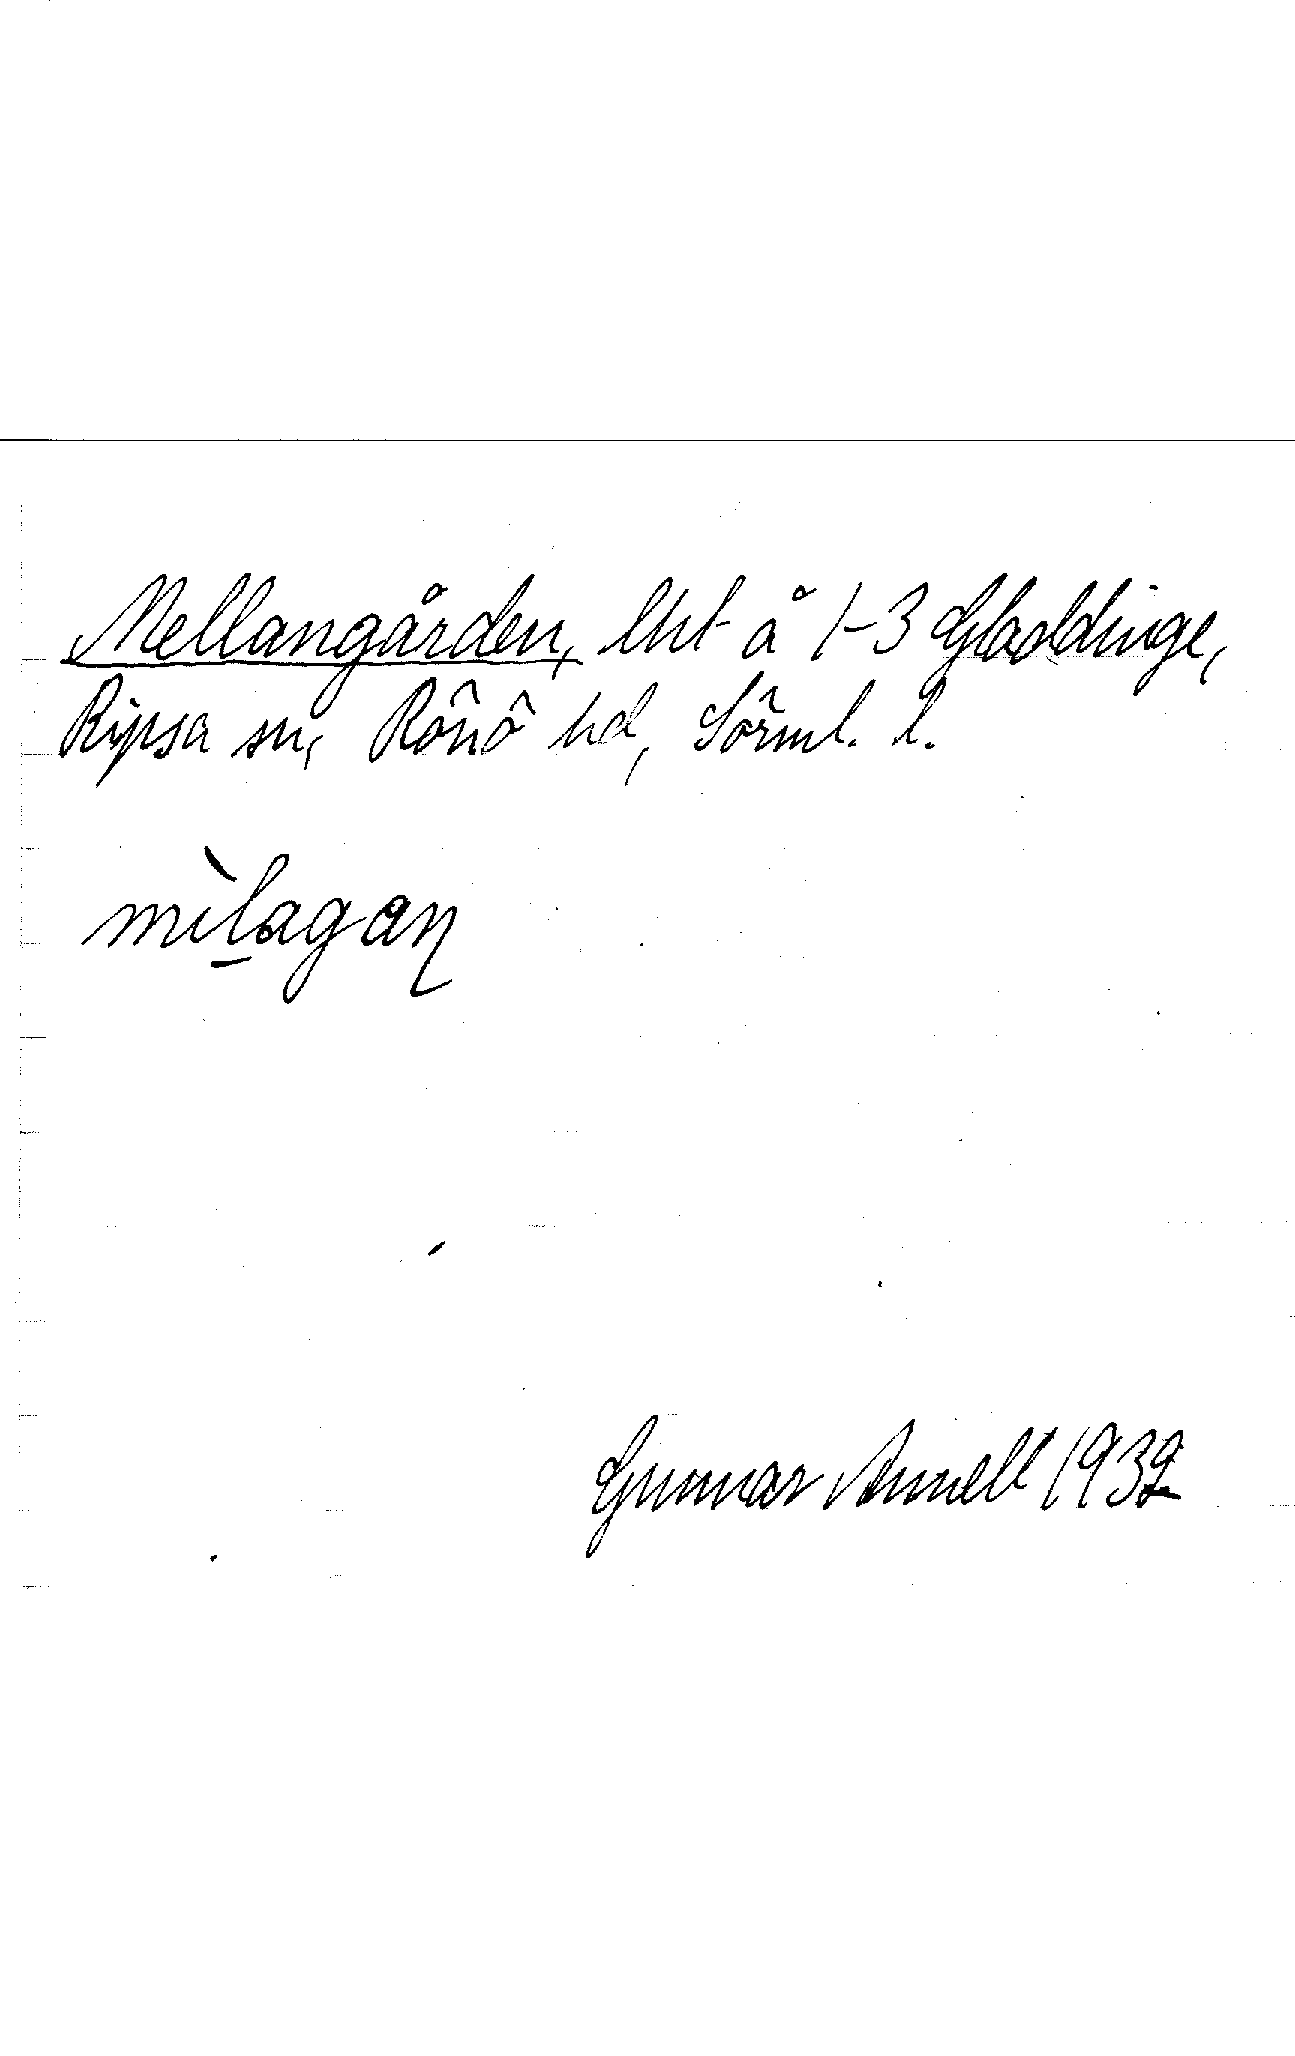 Mellangården, lht å 1-3 Gladdinge,
Ripsa sn, Rönö hd, Sörml. l.
mìlagan
Gunnar Annell 1932